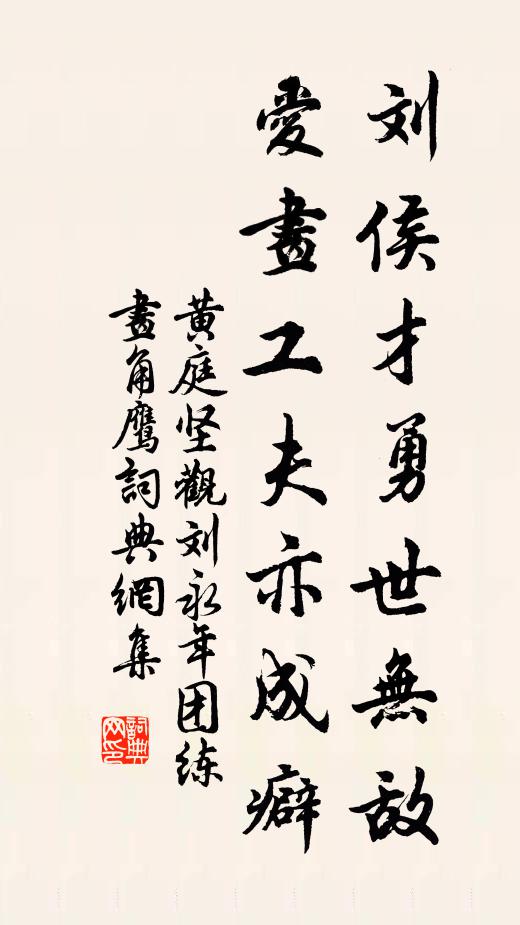 刘侯才勇世無敌
愛畫工夫亦成癖
黄庭坚觀刘永年团练
畫角鹰詞典網集
詞典網印